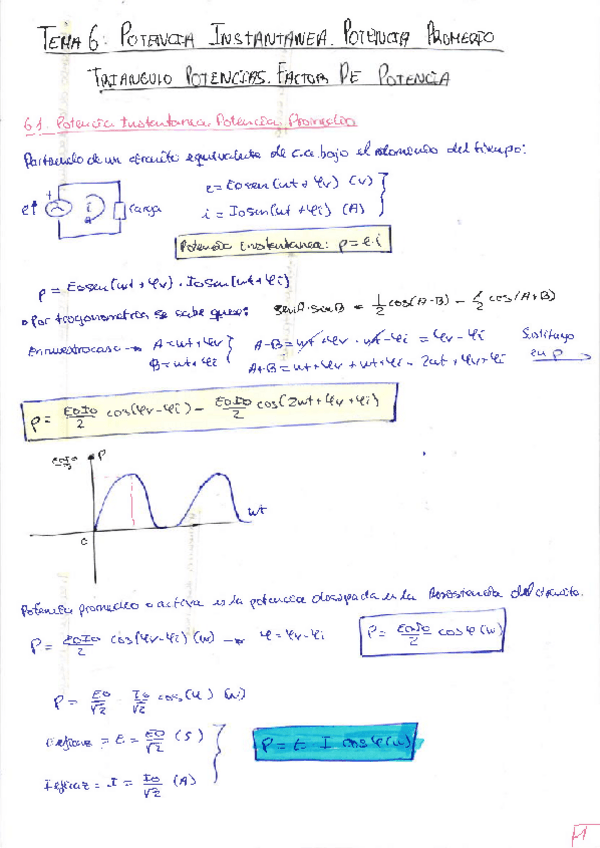 TEMA 6: POTENCIA INSTANTANEA. POTENCIA PROMEDIO
TRIANGULO POTENCIAS. FACTOR DE POTENCIA
6.1. Potencia Instantanea. Potencia Promedio
Partiendo de un circuito equivalente de c.a. bajo el dominio del tiempo:
e = Eo sen(wt + φv) (V)
i = Io sen(wt + φi) (A)
e↑ + i carga
Potencia instantanea: p = e·i
p = Eo sen(wt + φv) · Io sen(wt + φi)
Por trogonometria se sabe que: senA·senB = 1/2 cos(A-B) - 1/2 cos(A+B)
En nuestro caso → A = wt + φv
B = wt + φi
A-B = wt + φv - wt - φi = φv - φi
A+B = wt + φv + wt + φi = 2wt + φv + φi
Sustituyo
en p →
p = EoIo/2 cos(φv-φi) - EoIo/2 cos(2wt + φv + φi)
EoIo/2 P
wt
0
Potencia promedio o activa es la potencia disipada en la Resistencia del circuito.
P = EoIo/2 cos(φv-φi) (W) → φ = φv-φi
P = EoIo/2 cos φ (W)
P = Eo/√2 · Io/√2 cos(φ) (W)
Eeficaz = E = Eo/√2 (S)
P = E I cos φ (W)
Ieficaz = I = Io/√2 (A)